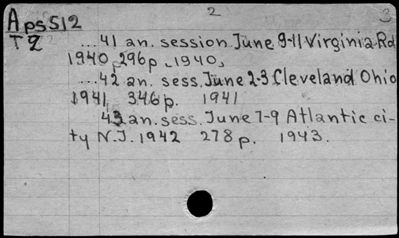 2
3
Aps512
T2
...41 an. session. June 9-11 Virginia Rd
1940, 296p. 1940.
...42 an. sess. June 2-3 Cleveland Ohio
1941. 346p. 1941
43 an. sess. June 7-9 Atlantic ci-
ty N.J. 1942 278 p. 1943.